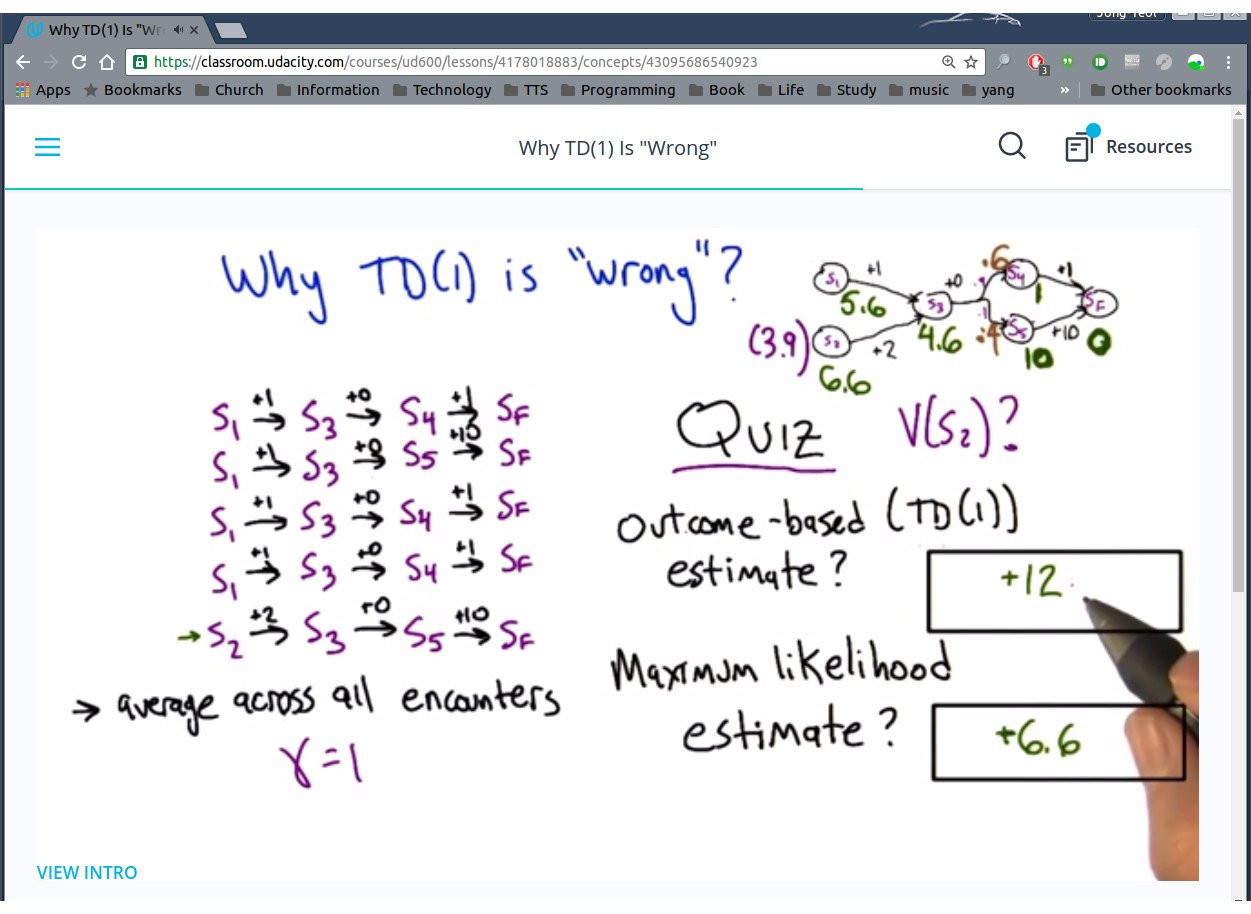 Why TD(1) Is "Wr
Jong Yeol
https://classroom.udacity.com/courses/ud600/lessons/4178018883/concepts/43095686540923
3
Apps Bookmarks Church Information Technology TTS Programming Book Life Study music yang » Other bookmarks
Why TD(1) Is "Wrong"
Resources
Why TD(1) is "wrong"?
S1 +1 S3 +0 S4 +1 SF
S1 +1 S3 +0 S5 +10 SF
S1 +1 S3 +0 S4 +1 SF
S1 +1 S3 +0 S4 +1 SF
→ S2 +2 S3 +0 S5 +10 SF
→ average across all encounters
γ=1
S1 +1 S3 +0 .6 S4 +1 SF
5.6 .9 1
(3.9) S2 +2 4.6 .1 .4 S5 +10 0
6.6 10
QUIZ V(S2)?
Outcome-based (TD(1))
estimate?
+12
Maximum likelihood
estimate?
+6.6
VIEW INTRO